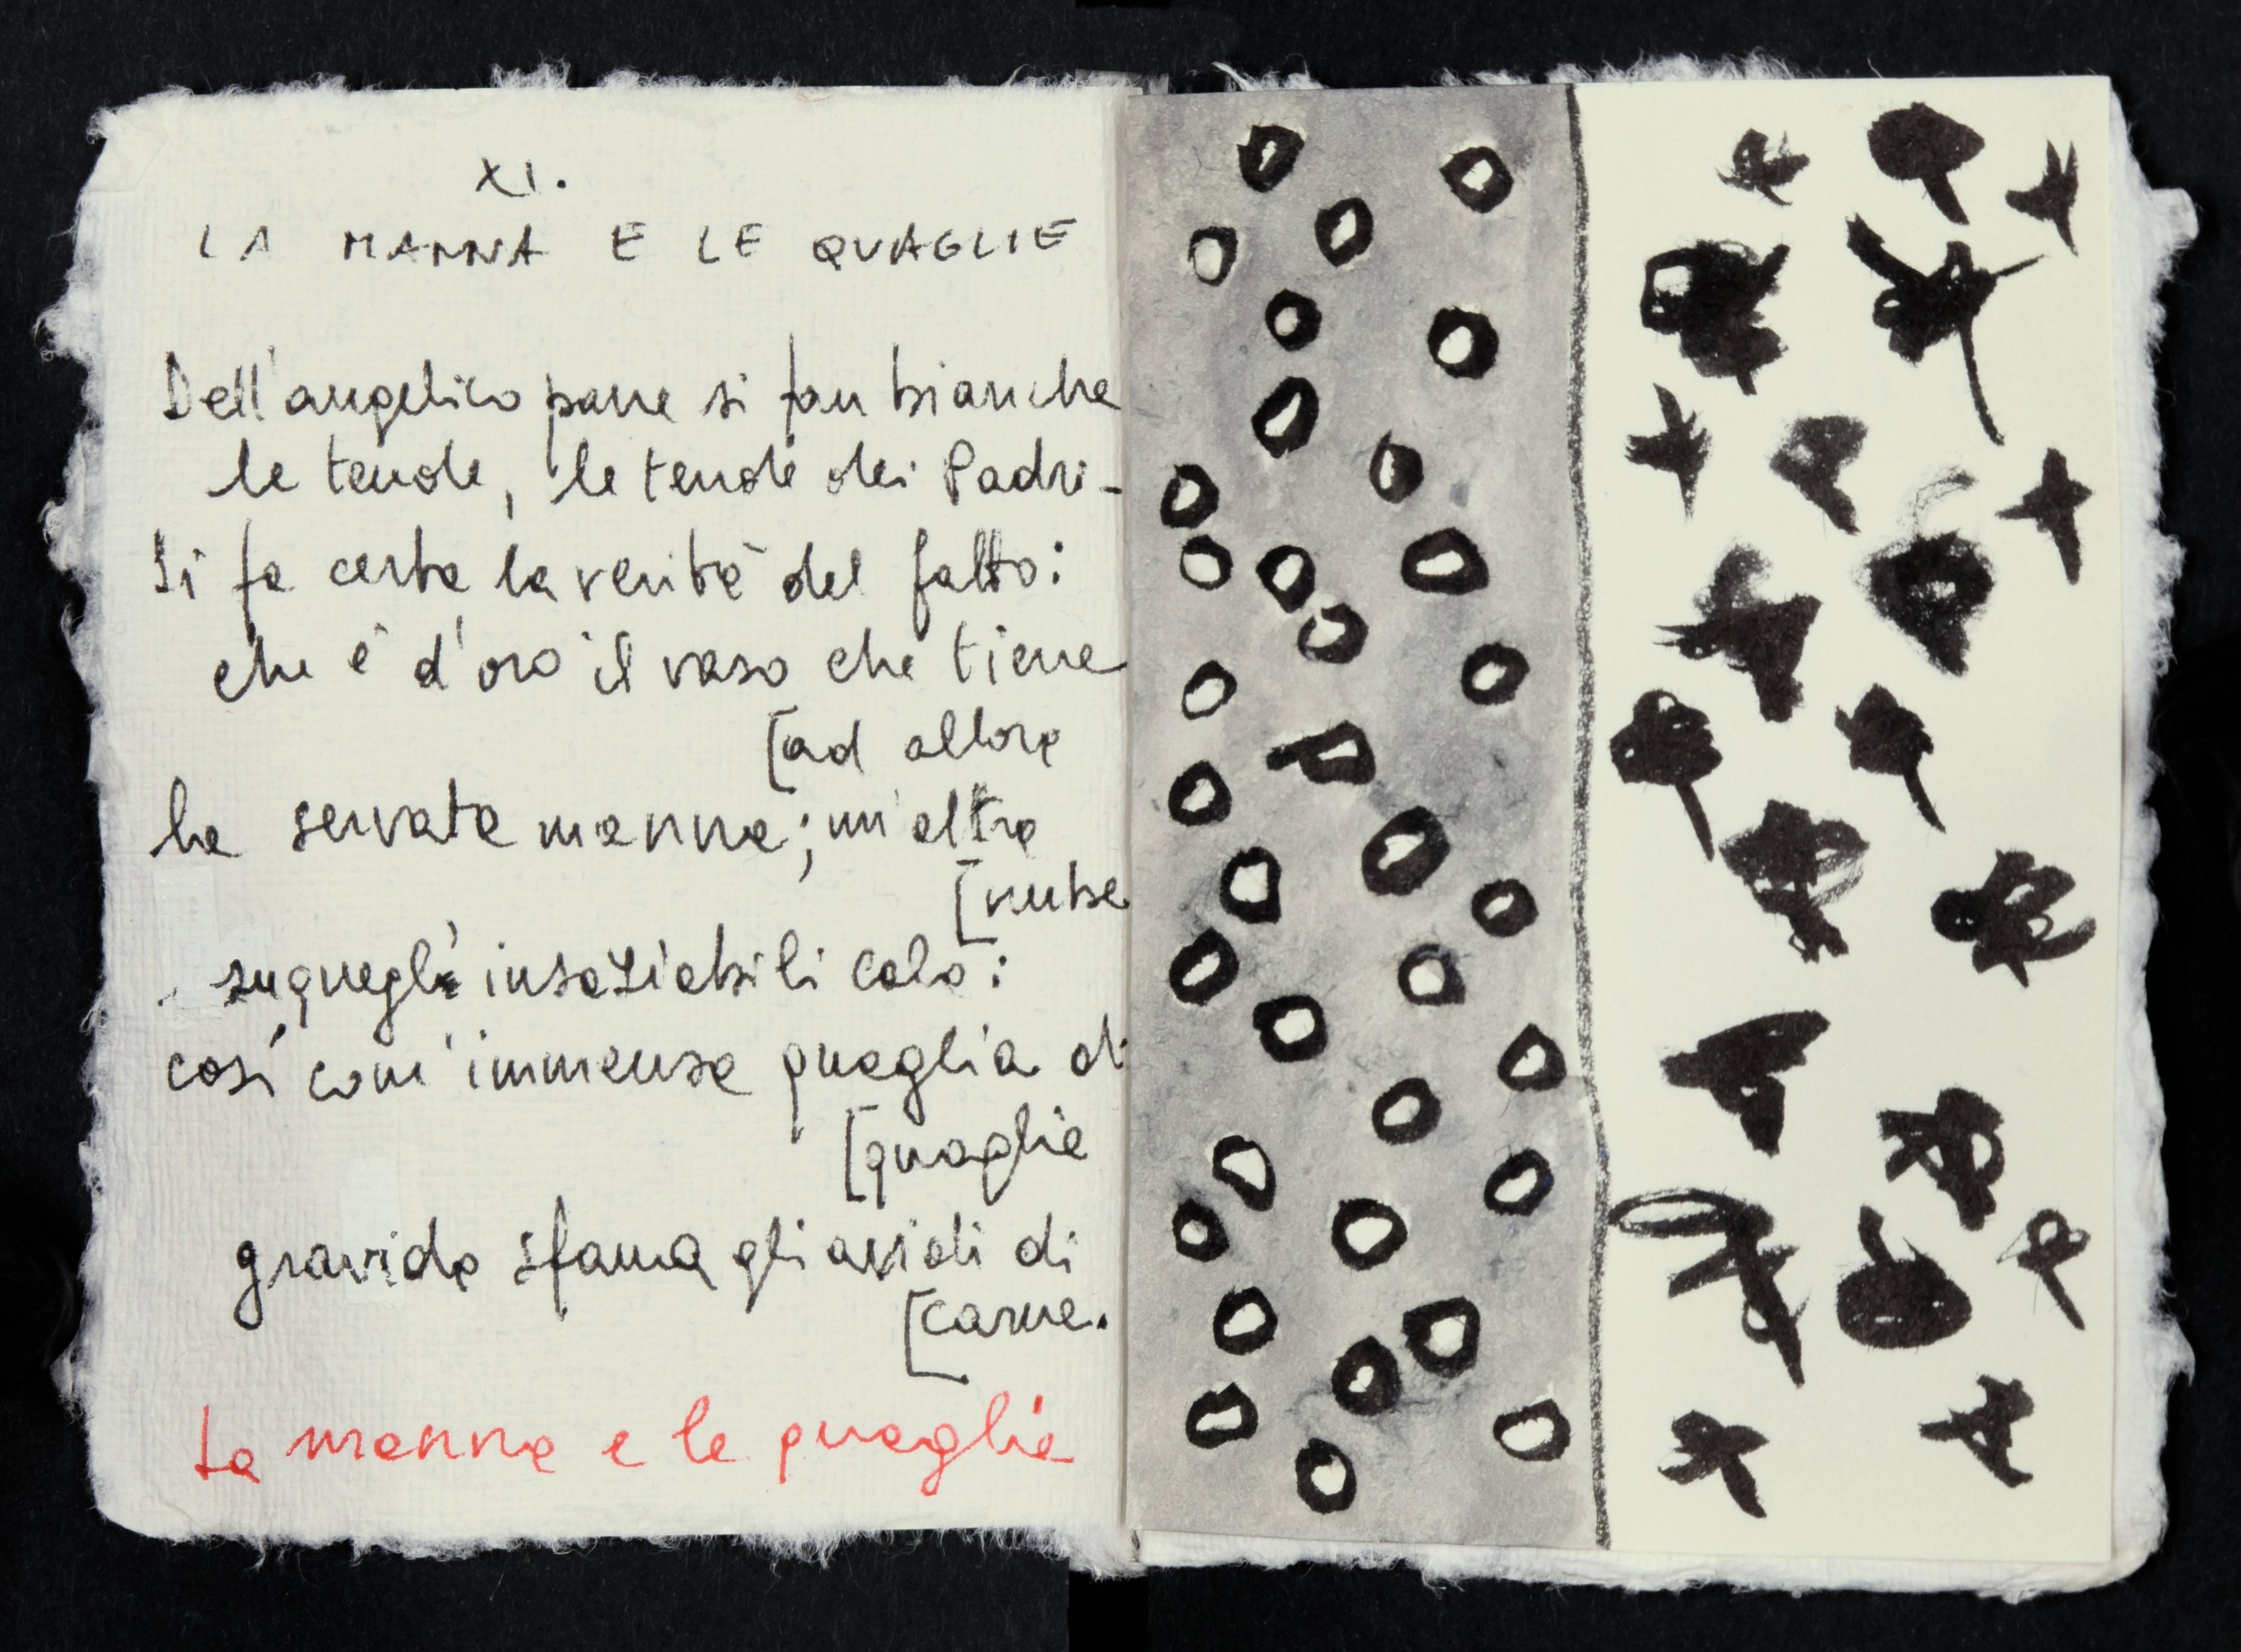 XI.
LA MANNA E LE QUAGLIE
Dell'angelico pane si fan bianche
le tende, le tende dei Padri-
Si fa certa la verità del fatto:
che è d'oro il vaso che tiene
[ad allora
ha servata manna; un'altra
[nube
su quegli insaziabili cala:
così com'immensa quaglia di
[quaglie
gravida sfama gli avidi di
[carne.
La manna e le quaglie